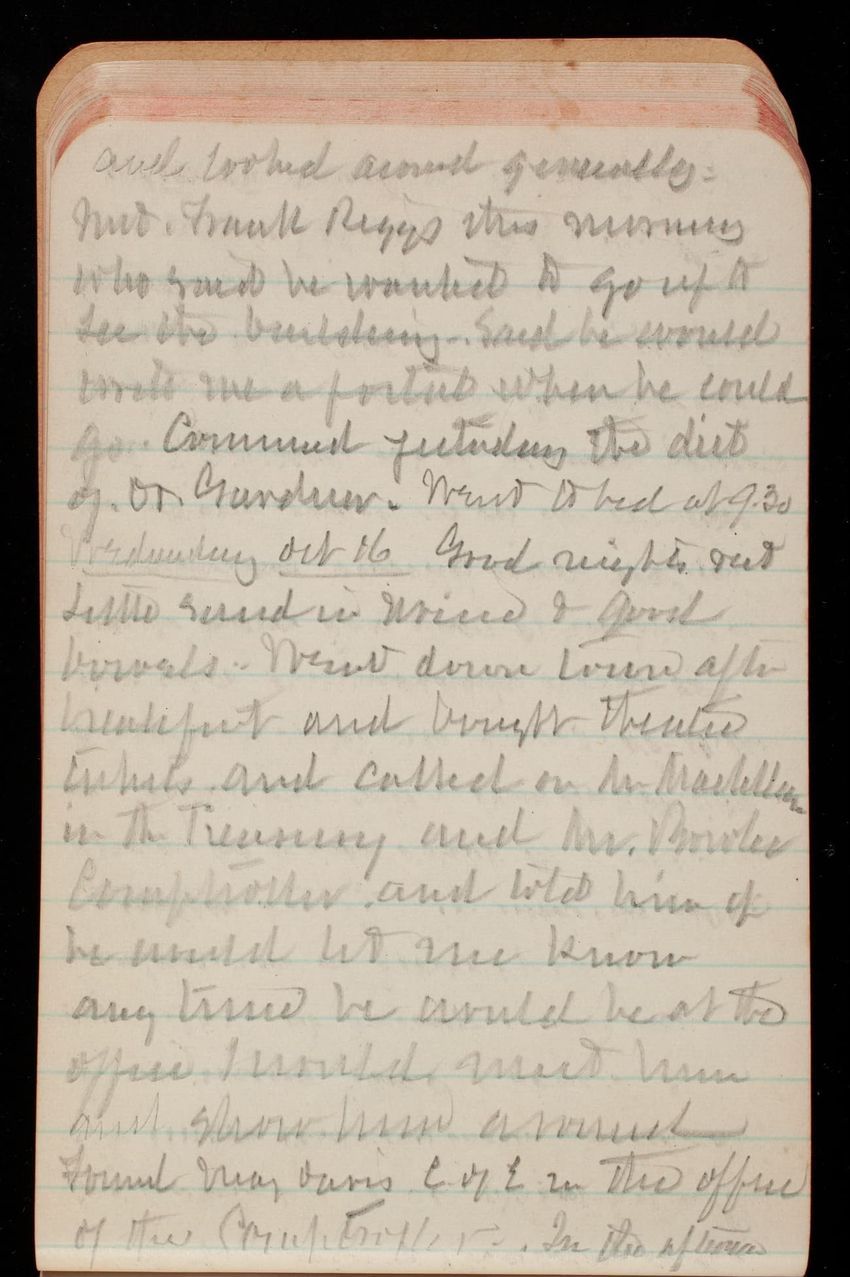 and looked around generally.
Met Frank Riggs this morning
who said he wanted to go up to
see the building. Said he would
write me a postal when he could
go. Commenced yesterday the diet
of Dr. Gardner. Went to bed at 9.30
Wednesday Oct 16 Good nights rest
little sand in urine & good
bowels. Went down town after
breakfast and bought theatre
tickets and called on Mr Maclellan
in the Treasury and Mr. Bowler
Comptroller and told him if
he would let me know
any time he would be at the
office I would meet him
and show him around
Found Maj Davis C of E in the office
of the Comptroller. In the afternoon